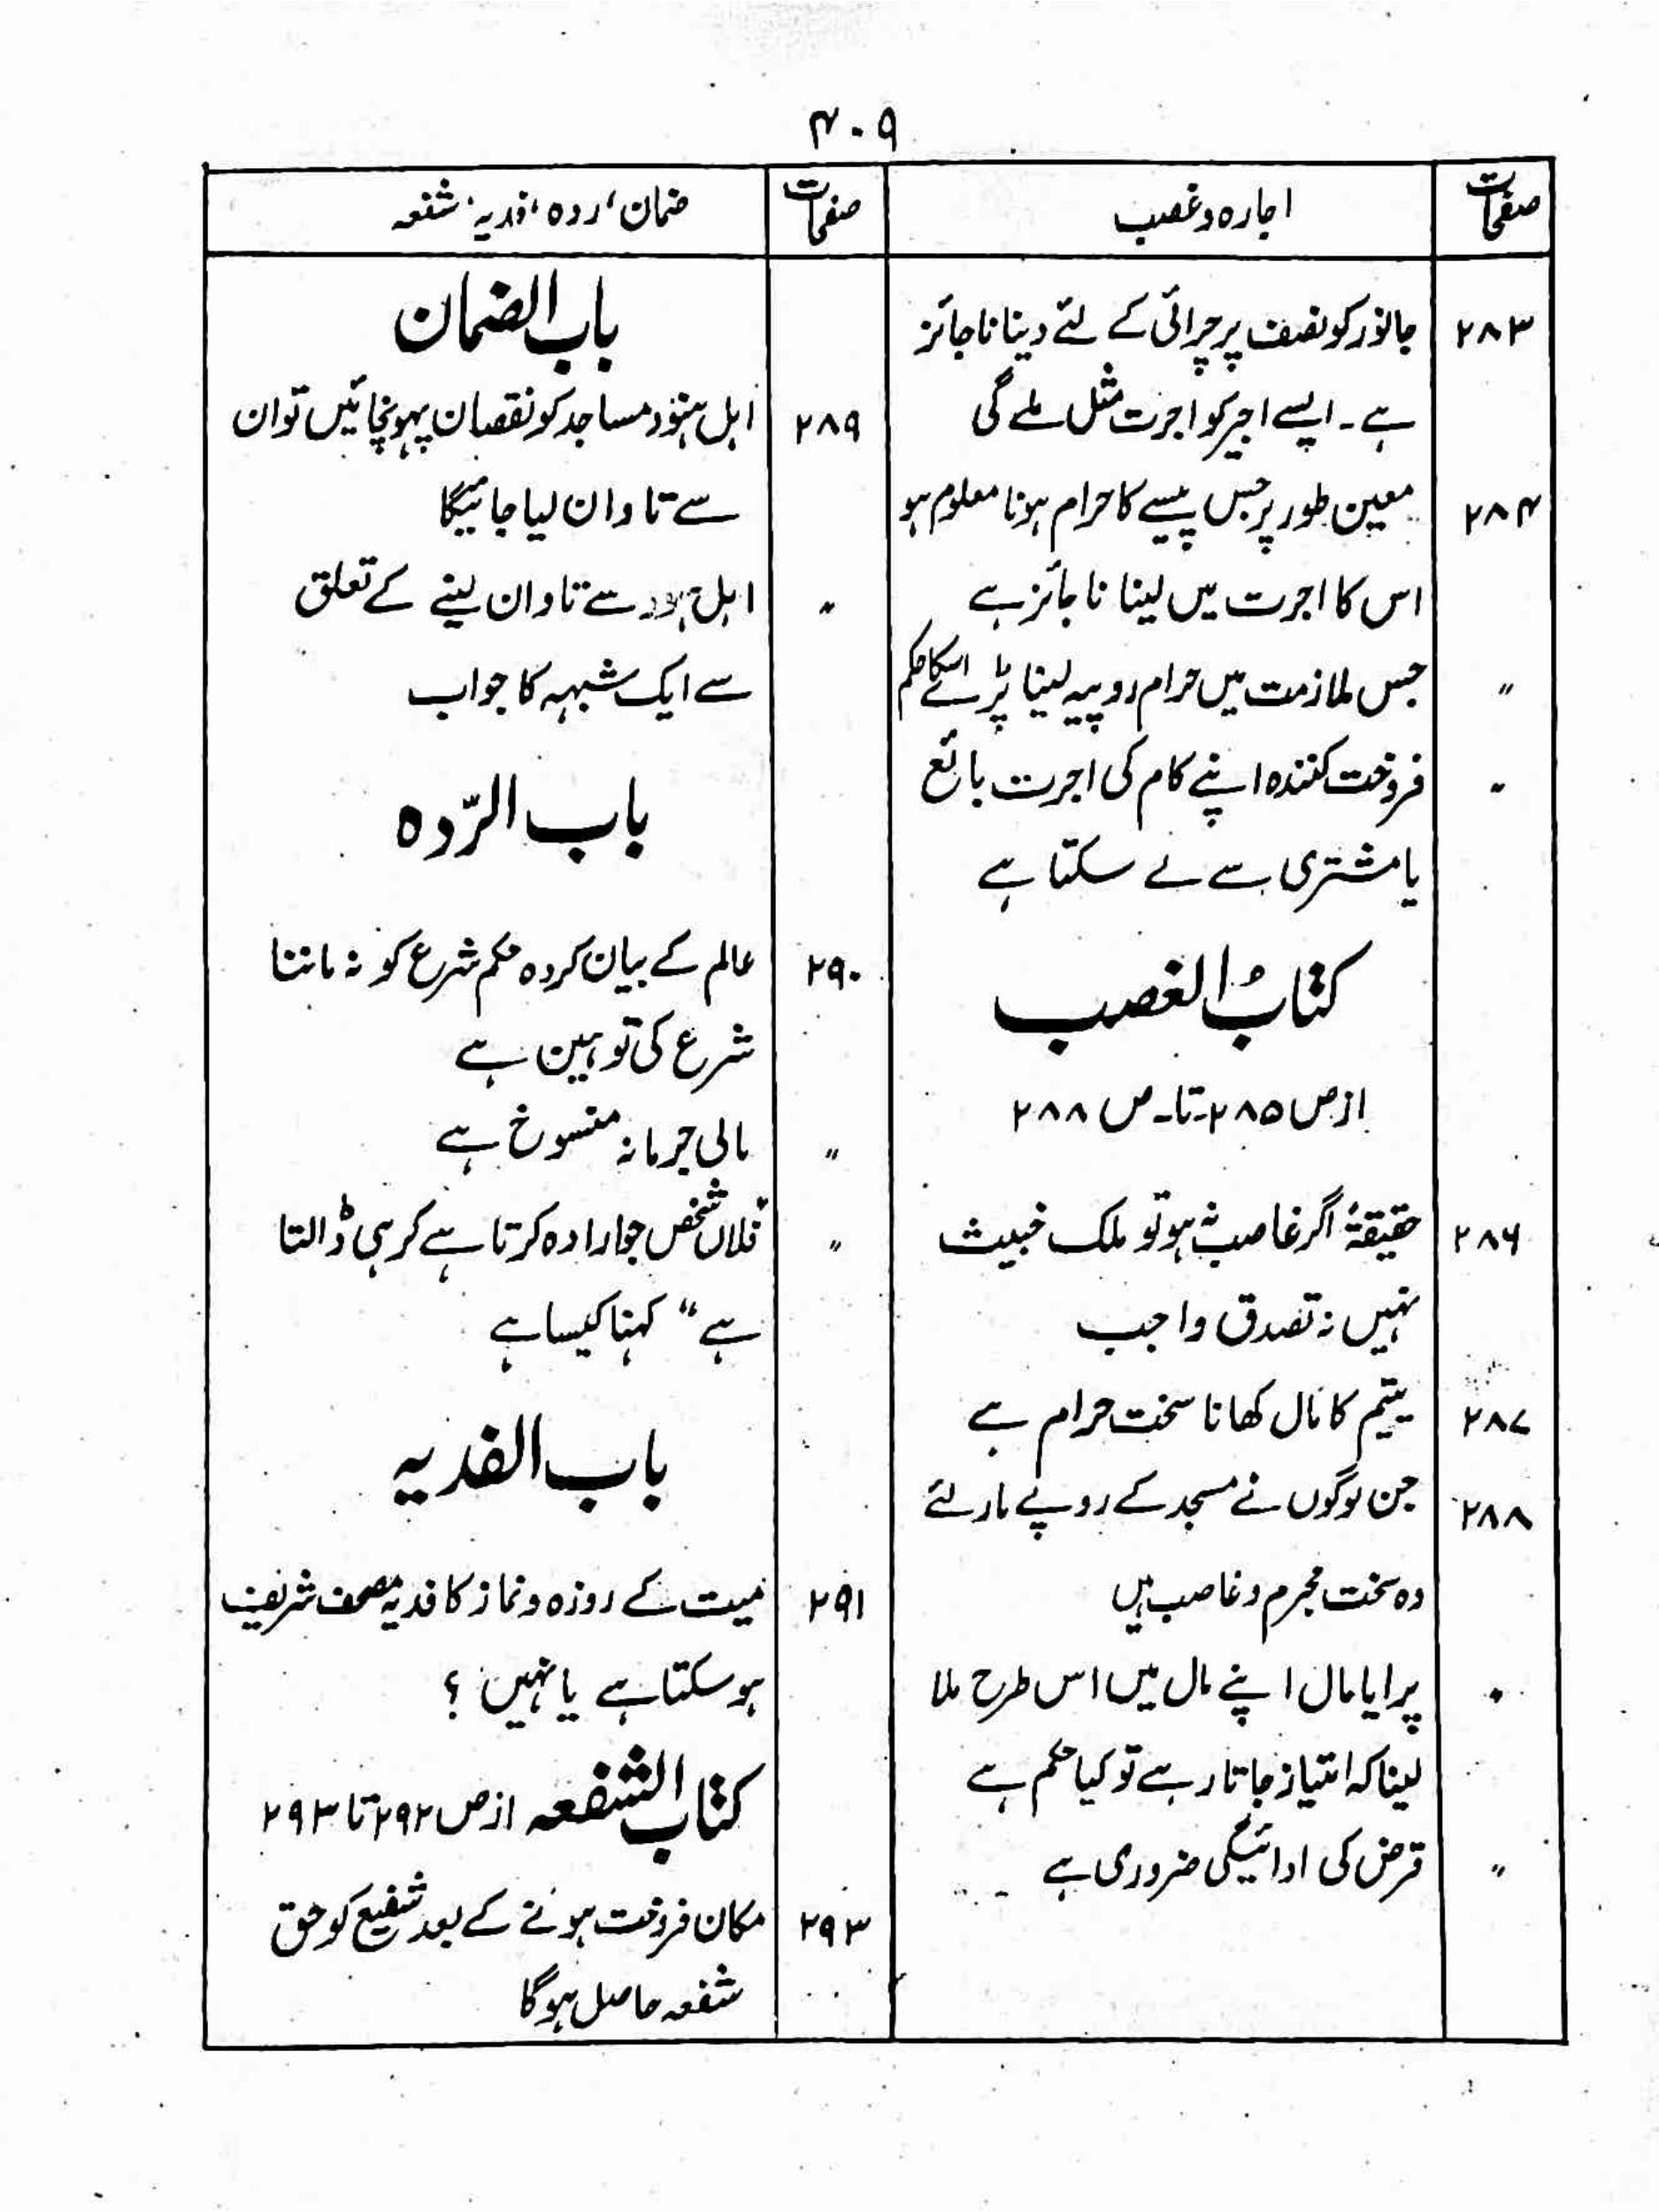 ۴۰۹
صفحات
اجارہ وغصب
۲۸۳
جانور کو نصف پر چرائی کے لئے دینا ناجائز
ہے۔ ایسے اجیر کو اجرت مثل ملے گی
۲۸۴
معین طور پر جس پیسے کا حرام ہونا معلوم ہو
اس کا اجرت میں لینا ناجائز ہے
〃
جس ملازمت میں حرام روپیہ لینا پڑے اسکا حکم
〃
فروخت کنندہ اپنے کام کی اجرت بائع
یا مشتری سے لے سکتا ہے
کتابُ الغصب
از ص ۲۸۵۔تا۔ص ۲۸۸
۲۸۶
حقیقۃً اگر غاصب نہ ہو تو ملک خبیث
نہیں نہ تصدق واجب
۲۸۷
یتیم کا مال کھانا سخت حرام ہے
۲۸۸
جن لوگوں نے مسجد کے روپے مار لئے
وہ سخت مجرم وغاصب ہیں
〃
پرایا مال اپنے مال میں اس طرح ملا
لینا کہ امتیاز جاتا رہے تو کیا حکم ہے
〃
قرض کی ادائیگی ضروری ہے
صفحات
ضمان، ردہ، فدیہ، شفعہ
باب الضمان
۲۸۹
اہل ہنود مساجد کو نقصان پہونچائیں تو ان
سے تاوان لیا جائیگا
〃
اہل ہنود سے تاوان لینے کے تعلق
سے ایک شبہہ کا جواب
باب الرّدہ
۲۹۰
عالم کے بیان کردہ حکم شرع کو نہ ماننا
شرع کی توہین ہے
〃
مالی جرمانہ منسوخ ہے
〃
فلاں شخص جو ارادہ کرتا ہے کر ہی ڈالتا
ہے“ کہنا کیسا ہے
باب الفدیہ
۲۹۱
میت کے روزہ ونماز کا فدیہ مصحف شریف
ہو سکتا ہے یا نہیں ؟
کتاب الشفعہ از ص ۲۹۲ تا ۲۹۳
۲۹۳
مکان فروخت ہونے کے بعد شفیع کو حق
شفعہ حاصل ہوگا